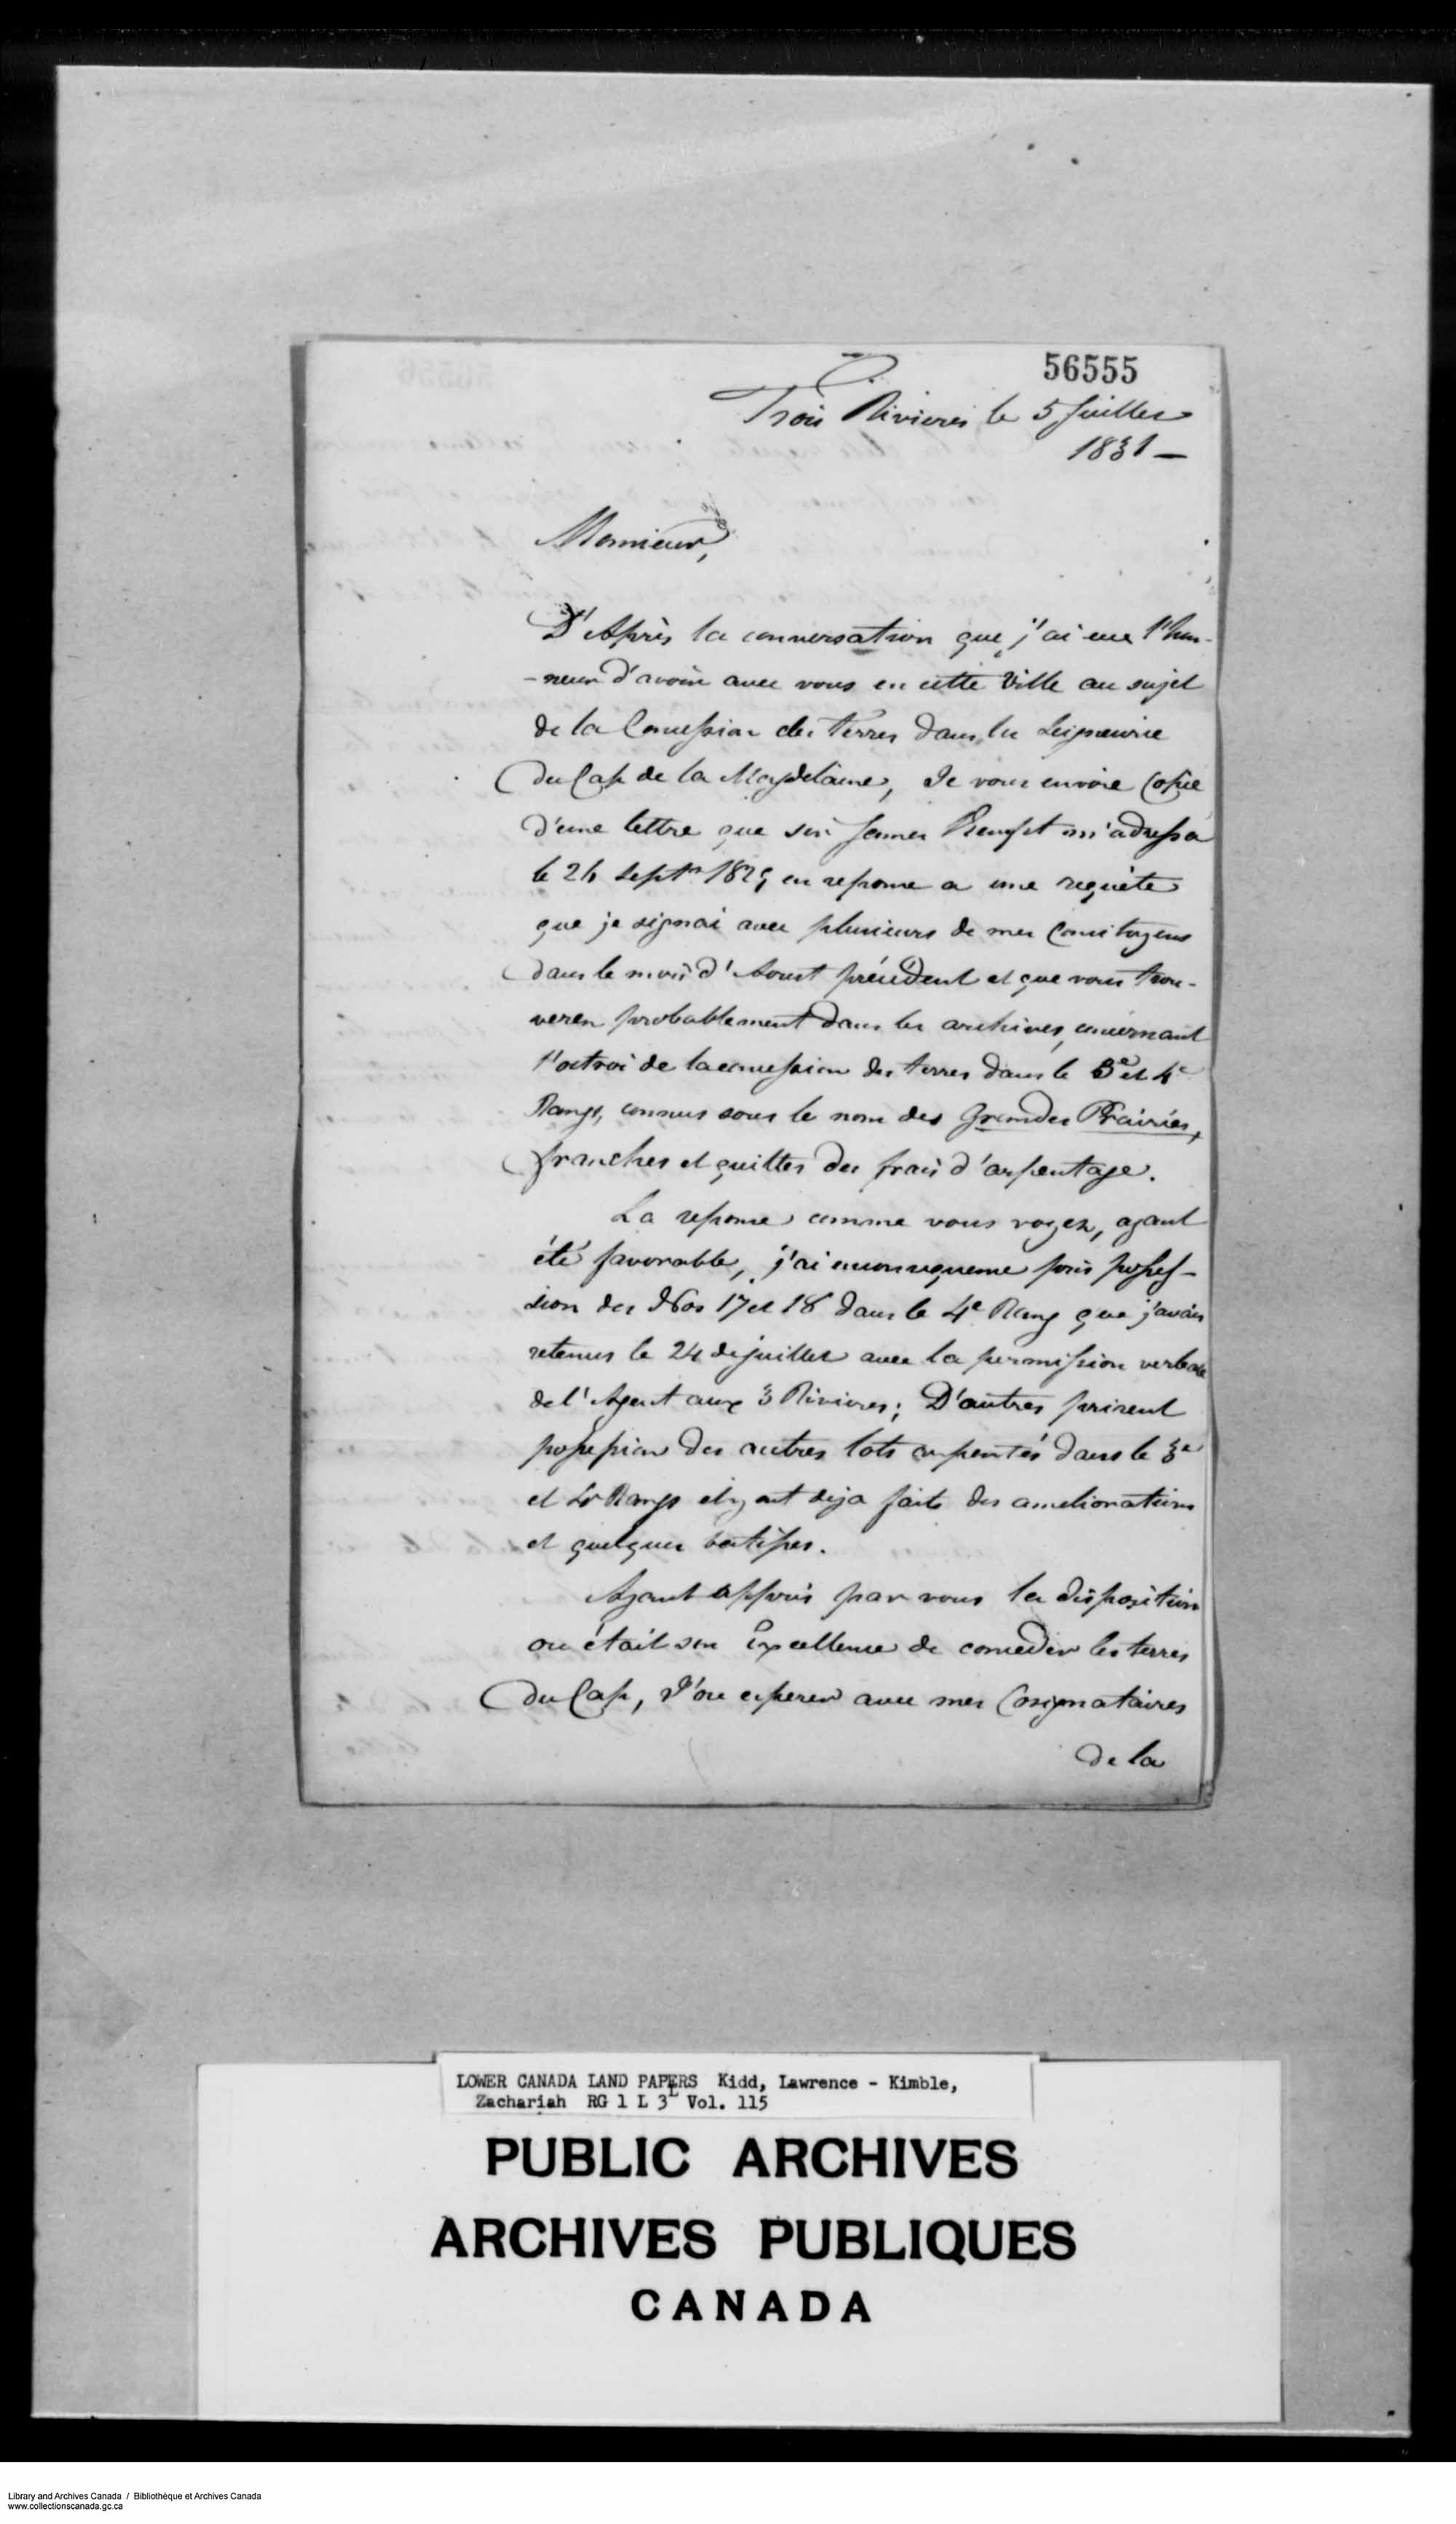 56555
Trois Rivieres le 5 Juillet
1831 —
Monsieur,
D'Après la conversation que j'ai eue l'hon-
-neur d'avoir avec vous en cette Ville au sujet
de la Concession des terres dans la Seigneurie
du Cap de la Magdelaine, Je vous envoie Copie
d'une lettre que sir James Kempt m'adressa
le 24 septre 1829 en reponse a une requête
que je signai avec plusieurs de mes Concitoyens
dans le mois d'Aoust précédent et que vous trou-
verez probablement dans les archives, concernant
l'octroi de la concession des terres dans le 3e et 4e
Rangs, connus sous le nom des Grandes Prairies,
franches et quittes des frais d'arpentage.
La reponse comme vous voyez, ayant
été favorable, j'ai en conséquence pris posses-
sion des Nos 17 et 18 dans le 4e Rang que j'avais
retenus le 24 de juillet avec la permission verbale
de l'Agent aux 3 Rivieres; D'autres prirent
possession des autres lots arpentés dans le 3e
et 4e Rangs et y ont deja faits des ameliorations
et quelques batisses.
Ayant appris par vous la disposition
ou était son Excellence de conceder les terres
du Cap, J'ose esperer avec mes Cosignataires
de la
LOWER CANADA LAND PAPERS Kidd, Lawrence - Kimble,
Zachariah RG 1 L 3L Vol. 115
PUBLIC ARCHIVES
ARCHIVES PUBLIQUES
CANADA
Library and Archives Canada / Bibliothèque et Archives Canada
www.collectionscanada.gc.ca